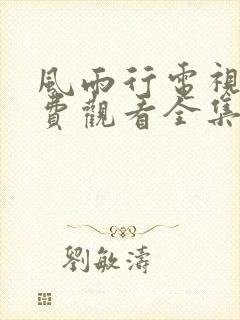 風雨行電視
費觀看全集
劉敏濤